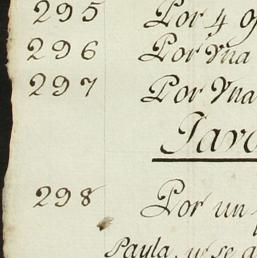 295 Por 4
296 Por Vna
297 Por Vna
298 Por un
Payla, u se